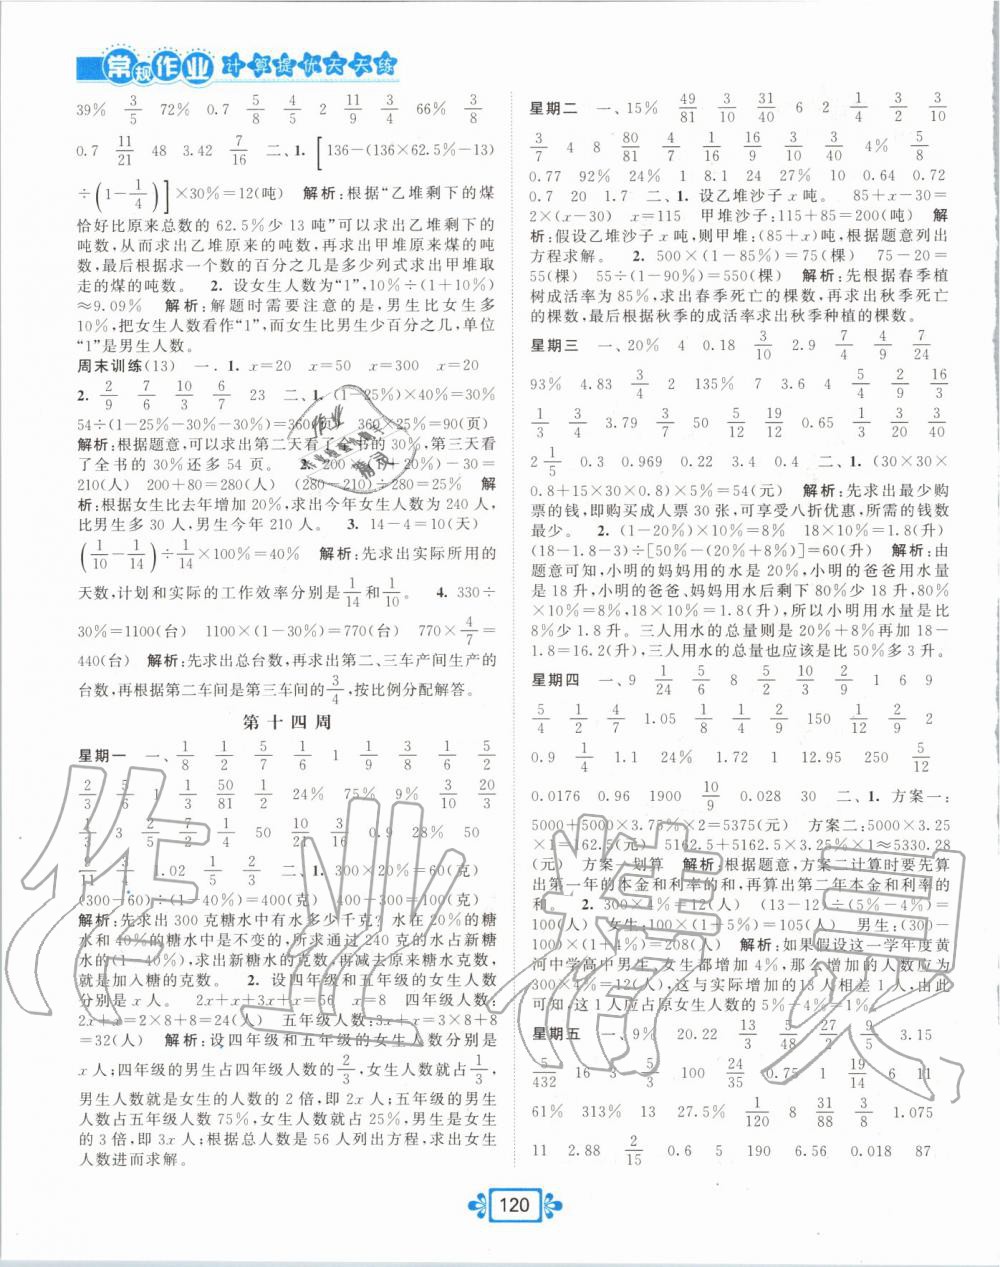 常规作业 计算提优天天练
39% 3/5 72% 0.7 5/8 4/5 2 11/9 3/4 66% 3/8
0.7 11/21 48 3.42 7/16 二、1. [136-(136×62.5%-13)
÷(1-1/4)]×30%=12(吨) 解析:根据“乙堆剩下的煤
恰好比原来总数的 62.5%少 13 吨”可以求出乙堆剩下的
吨数,从而求出乙堆原来的吨数,再求出甲堆原来煤的吨
数,最后根据求一个数的百分之几是多少列式求出甲堆取
走的煤的吨数。 2. 设女生人数为“1”,10%÷(1+10%)
≈9.09% 解析:解题时需要注意的是,男生比女生多
10%,把女生人数看作“1”,而女生比男生少百分之几,单位
“1”是男生人数。
周末训练(13) 一.1. x=20 x=50 x=300 x=20
2. 2/9 7/6 10/3 6/7 23 二、1. (1-25%)×40%=30%
54÷(1-25%-30%-30%)=360(页) 360×25%=90(页)
解析:根据题意,可以求出第二天看了全书的 30%,第三天看
了全书的 30%还多 54 页。 2. 200×(1+20%)-30=
210(人) 200+80=280(人) (280-210)÷280=25% 解
析:根据女生比去年增加 20%,求出今年女生人数为 240 人,
比男生多 30 人,男生今年 210 人。 3. 14-4=10(天)
(1/10-1/14)÷1/14×100%=40% 解析:先求出实际所用的
天数,计划和实际的工作效率分别是1/14和1/10。 4. 330÷
30%=1100(台) 1100×(1-30%)=770(台) 770×4/7=
440(台) 解析:先求出总台数,再求出第二、三车产间生产的
台数,再根据第二车间是第三车间的3/4,按比例分配解答。
第十四周
星期一 一、1/8 1/2 5/7 1/6 1 1/9 3/8 1/6 5/2
2/3 5/6 1 1/3 50/81 1/2 24% 75% 9% 3/10 5/3
1/3 3 5/2 7/2 1/4 50 10/21 3/16 0.9 28% 50
3/11 3/4 1.02 1/5 5/3 二、1. 240÷40%=60(克)
(300-60)÷(1-40%)=400(克) 400-300=100(克)
解析:先求出 300 克糖水中有水多少千克? 水在 20%的糖
水和 40%的糖水中是不变的,所求通过 240 克的水占新糖
水的(1-40%),求出新的糖水数,再减去原来糖水克数,
就是加入糖的克数。 2. 设四年级和五年级的女生人数
分别是 x 人。 2x+x+3x+x=56 x=8 四年级人数:
2x+x=2×8+8=24(人) 五年级人数:3x+x=3×8+8=
32(人) 解析:设四年级和五年级的女生人数分别是
x 人;四年级的男生占四年级人数的2/3,女生人数占1/3,
男生人数就是女生的人数的 2 倍,即 2x 人;五年级的男生
人数占五年级人数 75%,女生人数占 25%,男生是女生的
的 3 倍,即 3x 人;根据总人数是 56 人列出方程,求出女生
人数进而求解。
星期二 一、15% 49/81 3/10 31/40 6 2 1/4 3/2 3/10
3/7 4 8 80/81 4/7 1/16 9/10 3/4 3/40 4% 5/8
0.77 92% 24% 1 8.1 24 27% 10 0.64 0.72
0.7 20 1.7 二、1. 设乙堆沙子 x 吨。 85+x-30=
2×(x-30) x=115 甲堆沙子:115+85=200(吨) 解
析:假设乙堆沙子 x 吨,则甲堆:(85+x)吨,根据题意列出
方程求解。 2. 500×(1-85%)=75(棵) 75-20=
55(棵) 55÷(1-90%)=550(棵) 解析:先根据春季植
树成活率为 85%,求出春季死亡的棵数,再求出秋季死亡
的棵数,最后根据秋季的成活率求出秋季种植的棵数。
星期三 一、20% 4 0.18 3/10 2.9 7/4 9/4 7/24
93% 4.83 3/4 2 135% 7 3.6 4 5/4 2/9 16/3
1/3 3/4 3.79 7/50 5/12 19/12 0.65 1/3 3/20 3/40
2 1/5 0.3 0.969 0.22 3.4 0.4 二、1. (30×30×
0.8+15×30×0.8)×5%=54(元) 解析:先求出最少购
票的钱,即购买成人票 30 张,可享受八折优惠,所需的钱数
最少。 2. (1-20%)×10%=8% 18×10%=1.8(升)
(18-1.8-3)÷[50%-(20%+8%)]=60(升) 解析:由
题意可知,小明的妈妈用的水是 20%,小明的爸爸用水量
是 18 升,小明的爸爸、妈妈用水后剩下 80%少 18 升,80%
×10%=8%,18×10%=1.8(升),所以小明用水量是比
8%少 1.8 升。三人用水的总量则是 20%+8%再加 18-
1.8=16.2(升),三人用水的总量也应该是比 50%多 3 升。
星期四 一、9 1/24 5/6 8 5/2 10/3 2/9 1 6 9
5/4 1/2 4/7 1.05 1/8 1/4 2/9 150 1/12 2/9 2
0.9 1/4 1.1 24% 1.72 1 12.95 250 5/12
0.0176 0.96 1900 10/9 0.028 30 二、1. 方案一:
5000+5000×3.75%×2=5375(元) 方案二:5000×3.25
%×1+5000=5162.5 5162.5+5162.5×3.25%×1≈5330.28
(元) 方案一划算 解析:根据题意,方案二计算时要先算
出第一年的本金和利率的和,再算出第二年本金和利率的
和。 2. 300×4%=12(人) (13-12)÷(5%-4%)=
100(人) 女生:100×(1+5%)=105(人) 男生:(300-
100)×(1+4%)=208(人) 解析:如果假设这一学年度黄
河中学高中男生、女生都增加 4%,那么增加的人数应为
300×4%=12(人),这与实际增加的 13 人相差 1 人,由此
可知,这 1 人应占原女生人数的 5%-4%=1%。
星期五 一、9% 20.22 13/3 5/48 27/2 9/5 3.15
5/432 16 3 100 24/35 0.75 1 19/14 6 11
61% 313% 13 27.5% 1/120 8 31/88 3/8 1.075
11 2.88 2/15 0.6 5 190 6.56 0.018 87
120
作业精灵